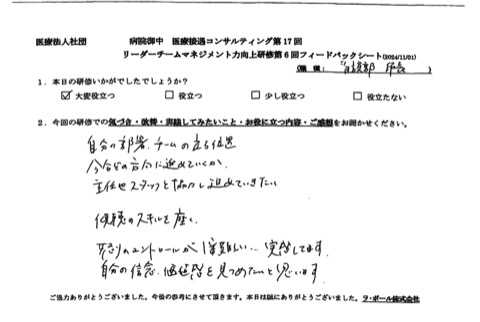 医療法人社団 病院御中 医療接遇コンサルティング第17回
リーダーチームマネジメント力向上研修第6回フィードバックシート(2024/11/01)
(職種:
1.本日の研修いかがでしたでしょうか?
☑ 大変役立つ □ 役立つ □ 少し役立つ □ 役立たない
2.今回の研修での気づき・改善・実践してみたいこと・お役に立つ内容・ご感想をお聞かせください。
自分の部署、チームの立ち位置
今後どの方向に進めていくか、
主任やスタッフと協力し進めていきたい
傾聴のスキルを磨く、
怒りのコントロールが1番難しい…実感してます
自分の信念、価値観を見つめたいと思います
ご協力ありがとうございました。今後の参考にさせて頂きます。本日は誠にありがとうございました。ラ・ポール株式会社